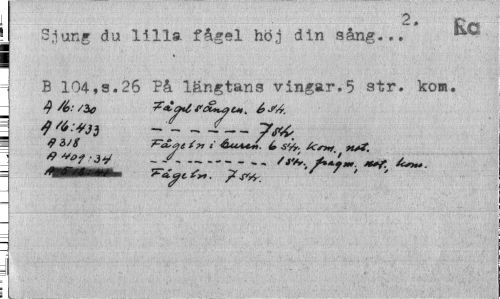 2. Ra
Sjung du lilla fågel höj din sång...
B 104,s.26 På längtans vingar.5 str. kom.
A 16:130 Fågelsången. 6 str.
A 16:433 - - - - - - - 7 str.
A 318 Fågeln i buren. 6 str, kom., not.
A 409:34 - - - - - - - - - - 1 str, fragm., not., kom.
Fågeln. 7 str.